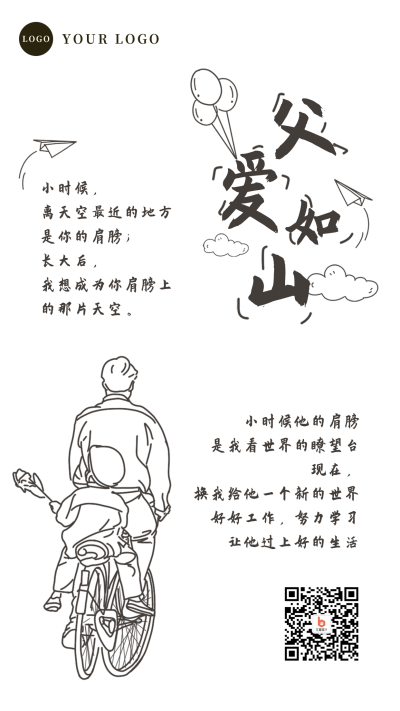 LOGO
YOUR LOGO
父
爱
如
山
小时候，
离天空最近的地方
是你的肩膀；
长大后，
我想成为你肩膀上
的那片天空。
小时候他的肩膀
是我看世界的瞭望台
现在，
换我给他一个新的世界
好好工作，努力学习
让他过上好的生活